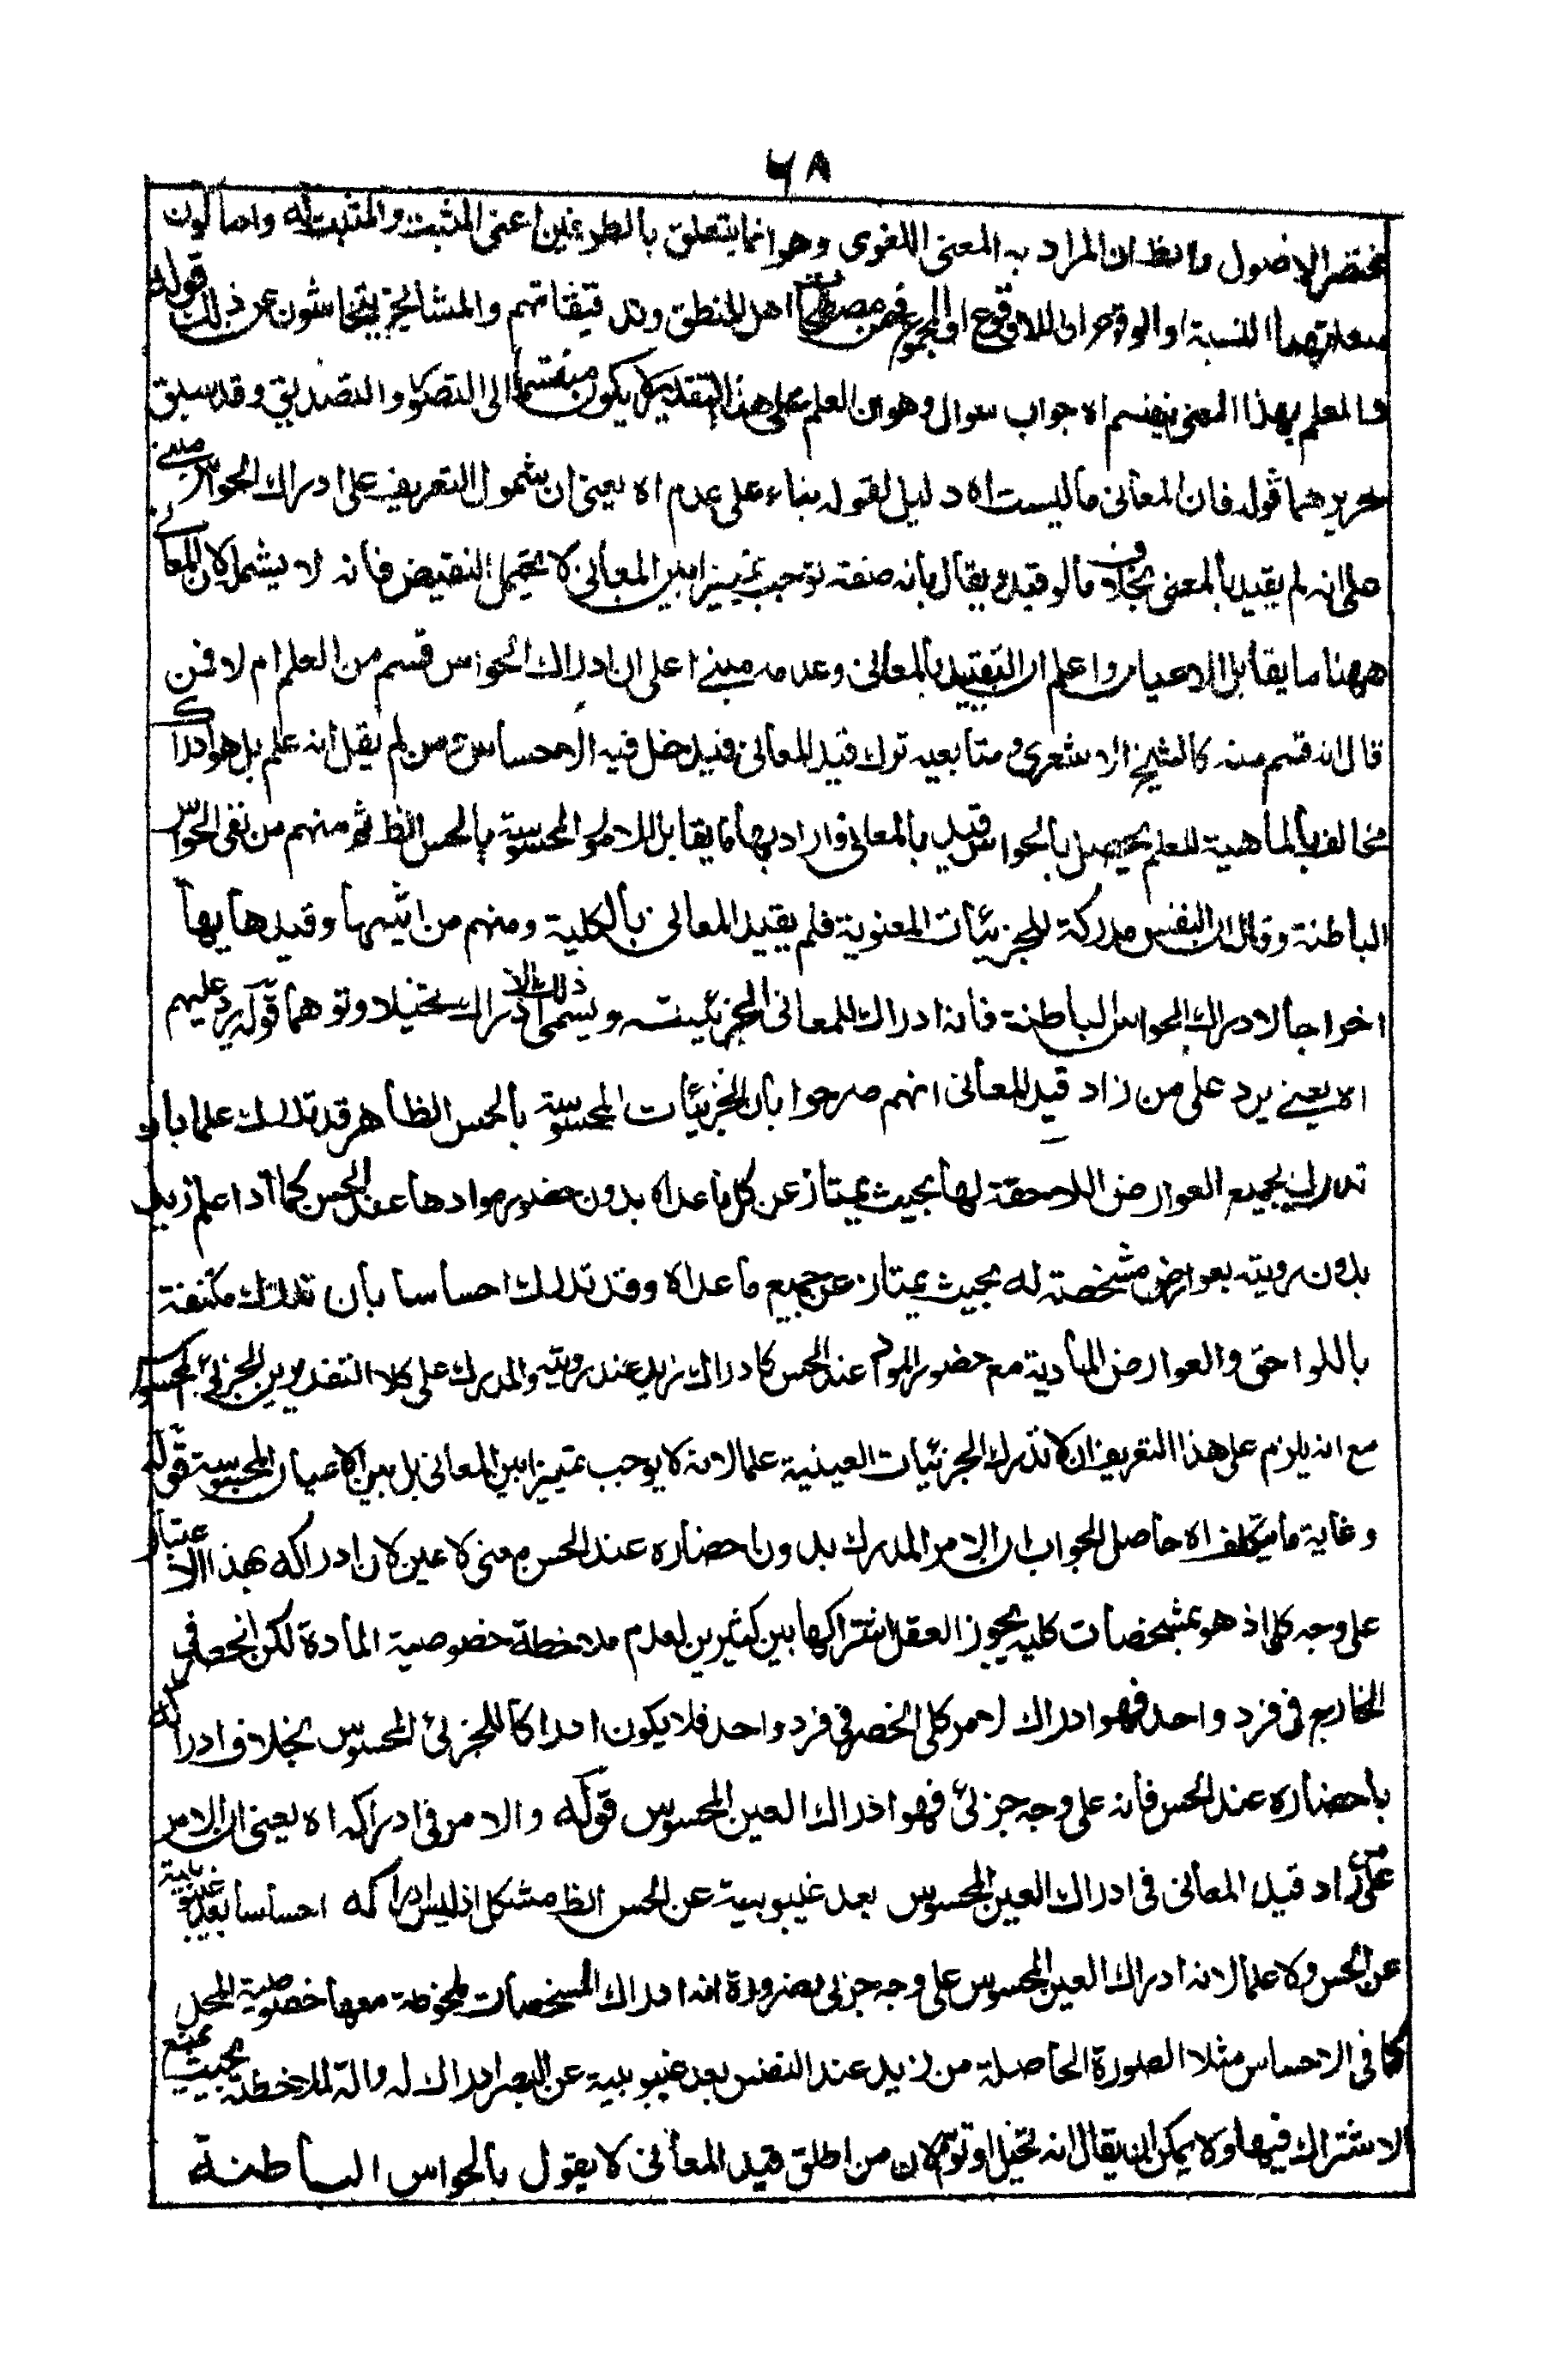 ٦٨
مختصر الاصول والظ ان المراد به المعنى اللغوى وهو انما يتعلق بالطرفين اعنى المثبت والمثبت له واما كون
متعلقهما النسبة او الوقوع او اللاوقوع او المجموع فمن مصطلحات اهل المنطق وتدقيقاتهم والمشايخ يتحاشون عن ذلك قوله
والعلم بهذا المعنى ينقسم اه جواب سوال وهو ان العلم على هذا التقدير لا يكون منقسما الى التصور والتصديق وقد سبق
تحريرهما قوله فان المعانى ما ليست اه دليل لقوله بناء على عدم اه يعنى ان شمول التعريف على ادراك الحواس مبنى
على انه لم يقيد بالمعنى بخلاف ما لو قيد ويقال بانه صفة توجب تمييزا بين المعانى لا يحتمل النقيض فانه لا يشمله لان المعانى
ههنا ما يقابل الاعيان واعلم ان التقييد بالمعانى وعدمه مبنى على ان ادراك الحواس قسم من العلم ام لا فمن
قال انه قسم منه كالشيخ الاشعرى ومتابعيه ترك قيد المعانى فيدخل فيه الاحساس ومن لم يقل انه علم بل هو ادراك
مخالف بالماهية للعلم يحصل بالحواس قيد بالمعانى واراد بها ما يقابل الامور المحسوسة بالحس الظ ثم منهم من نفى الحواس
الباطنة وقال ان النفس مدركة للجزئيات المعنوية فلم يقيد المعانى بالكلية ومنهم من اثبتها وقيدها بها
اخراجا لادراك الحواس الباطنة فانه ادراك للمعانى الجزئية ويسمى ذلك الادراك تخيلا وتوهما قوله يرد عليهم
اه يعنى يرد على من زاد قيد المعانى انهم صرحوا بان الجزئيات المحسوسة بالحس الظاهر قد تدرك علما بان
تدرك بجميع العوارض اللاحقة لها بحيث يمتاز عن كل ما عداه بدون حضور موادها عند الحس كما اذا علم زيد
بدون رويته بعوارض مشخصة له بحيث يمتاز عن جميع ما عداه وقد تدرك احساسا بان تدرك مكتنفة
باللواحق والعوارض المادية مع حضور المواد عند الحس كادراك زيد عند رويته والمدرك على كلا التقديرين الجزئى المحسوس
مع انه يلزم على هذا التعريف ان لا تدرك الجزئيات العينية علما لانه لا يوجب تمييزا بين المعانى بل بين الاعيان المحسوسة قوله
وغاية ما يتكلف اه حاصل الجواب ان الامر المدرك بدون احضاره عند الحس معنى لا عين لان ادراكه بهذا الاعتبار
على وجه كلى اذ هو بمشخصات كلية يجوز العقل اشتراكها بين كثيرين لعدم ملاحظة خصوصية المادة لكن انحصر فى
الخارج فى فرد واحد فهو ادراك لامر كلى انحصر فى فرد واحد فلا يكون ادراكا للجزئى المحسوس بخلاف ادراكه
باحضاره عند الحس فانه على وجه جزئى فهو ادراك العين المحسوس قوله والامر فى ادراكه اه يعنى ان الامر
على من زاد قيد المعانى فى ادراك العين المحسوس بعد غيبوبية عن الحس الظ مشكل اذ ليس ادراكه احساسا بعد غيبوبية
عن الحس ولا علما لانه ادراك العين المحسوس على وجه جزئى بضرورة انه ادراك المشخصات ملحوظة معها خصوصية المحل
كما فى الاحساس مثلا الصورة الحاصلة من زيد عند النفس بعد غيبوبية عن البصر ادراك له والة لملاحظته بحيث يمنع
الاشتراك فيها ولا يمكن ان يقال انه تخيل او توهم لان من اطلق قيد المعانى لا يقول بالحواس الباطنة